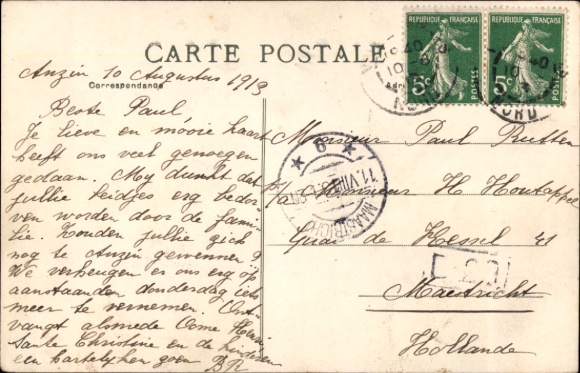 REPUBLIQUE FRANÇAISE REPUBLIQUE FRANÇAISE
5c 5c
NORD NORD
CARTE POSTALE
Anzin 10 Augustus 1913
Correspondance
Beste Paul
Je lieve en mooie kaart
heeft ons veel genoegen
gedaan. Moy dunkt dat
jullie teidjes erg bedor-
ven worden door de fami-
lie. Zouden jullie zich
nog te Anzin gewennen?
We verheugen er ons erg op
aanstaanden donderdag iets
meer te vernemen. Ont-
vangt alsmede Oome Henri
tante Christine en de kinderen
een hartelijken groen BR
Monsieur Paul Rutten
Monsieur H Houtappel
Quai de Hessel 41
Maestricht
Hollande
MAASTRICHT
6